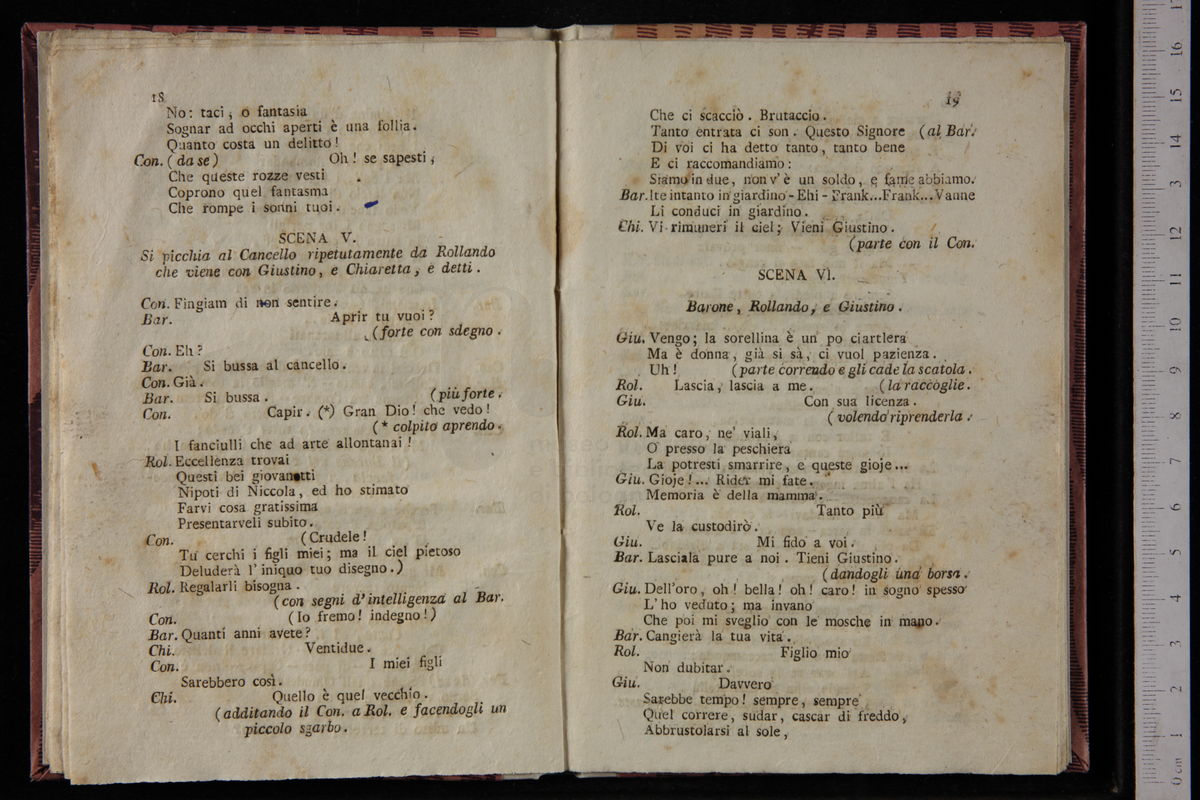 18
No: taci, o fantasia
Sognar ad occhi aperti è una follia.
Quanto costa un delitto!
Con. (da se) Oh! se sapesti,
Che queste rozze vesti
Coprono quel fantasma
Che rompe i sonni tuoi.
SCENA V.
Si picchia al Cancello ripetutamente da Rollando
che viene con Giustino, e Chiaretta, e detti.
Con. Fingiam di non sentire.
Bar. Aprir tu vuoi?
(forte con sdegno.
Con. Eh?
Bar. Si bussa al cancello.
Con. Già.
Bar. Si bussa. (più forte.
Con. Capir. (*) Gran Dio! che vedo!
(* colpito aprendo.
I fanciulli che ad arte allontanai!
Rol. Eccellenza trovai
Questi bei giovanetti
Nipoti di Niccola, ed ho stimato
Farvi cosa gratissima
Presentarveli subito.
Con. (Crudele!
Tu cerchi i figli miei; ma il ciel pietoso
Deluderà l'iniquo tuo disegno.)
Rol. Regalarli bisogna.
(con segni d'intelligenza al Bar.
Con. (Io fremo! indegno!)
Bar. Quanti anni avete?
Chi. Ventidue.
Con. I miei figli
Sarebbero così.
Chi. Quello è quel vecchio.
(additando il Con. a Rol. e facendogli un
piccolo sgarbo.
19
Che ci scacciò. Brutaccio.
Tanto entrata ci son. Questo Signore (al Bar.
Di voi ci ha detto tanto, tanto bene
E ci raccomandiamo:
Siamo in due, non v'è un soldo, e fame abbiamo.
Bar. Ite intanto in giardino - Ehi - Frank...Frank...Vanne
Li conduci in giardino.
Chi. Vi rimuneri il ciel; Vieni Giustino.
(parte con il Con.
SCENA VI.
Barone, Rollando, e Giustino.
Giu. Vengo; la sorellina è un po ciartlera
Ma è donna, già si sà, ci vuol pazienza.
Uh! (parte correndo e gli cade la scatola.
Rol. Lascia, lascia a me. (la raccoglie.
Giu. Con sua licenza.
(volendo riprenderla.
Rol. Ma caro, ne' viali,
O presso la peschiera
La potresti smarrire, e queste gioje...
Giu. Gioje!... Rider mi fate.
Memoria è della mamma.
Rol. Tanto più
Ve la custodirò.
Giu. Mi fido a voi.
Bar. Lasciala pure a noi. Tieni Giustino.
(dandogli una borsa.
Giu. Dell'oro, oh! bella! oh! caro! in sogno spesso
L'ho veduto; ma invano
Che poi mi sveglio con le mosche in mano.
Bar. Cangierà la tua vita.
Rol. Figlio mio
Non dubitar.
Giu. Davvero
Sarebbe tempo! sempre, sempre
Quel correre, sudar, cascar di freddo,
Abbrustolarsi al sole,